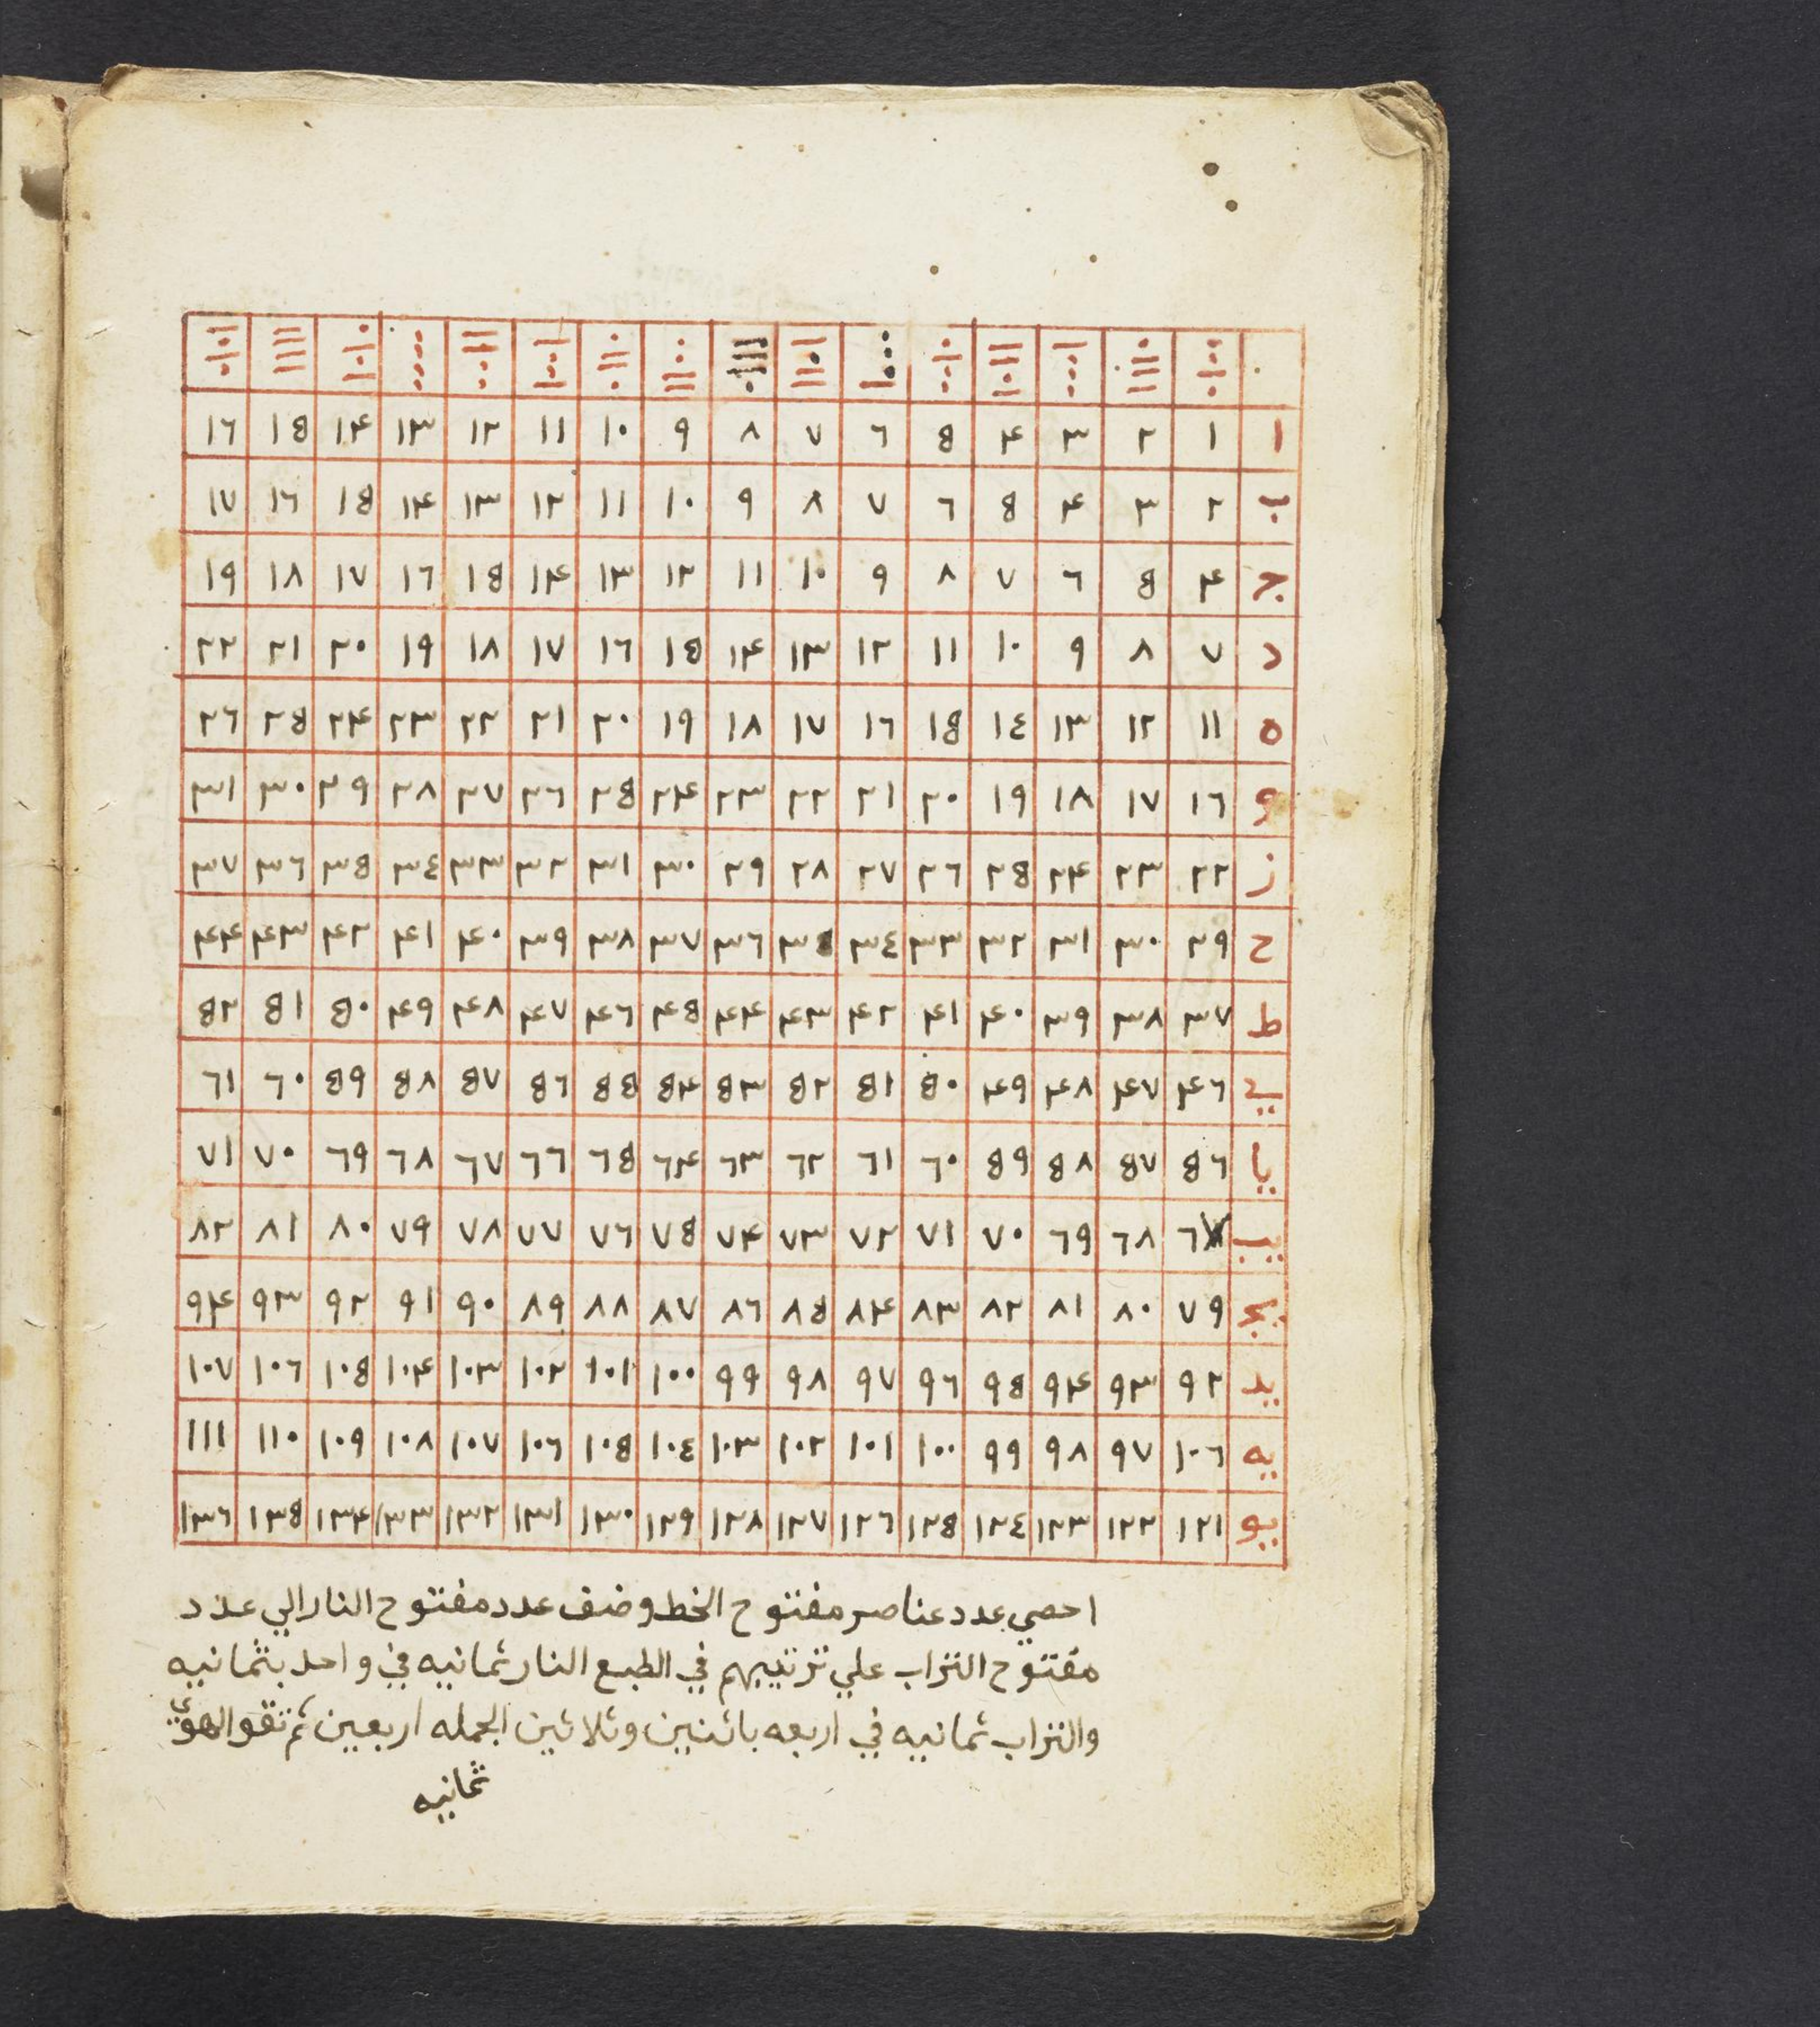 ا ١ ٢ ٣ ۴ ٥ ٦ ٧ ٨ ٩ ١٠ ١١ ١٢ ١٣ ١۴ ١٥ ١٦
ب ٢ ٣ ۴ ٥ ٦ ٧ ٨ ٩ ١٠ ١١ ١٢ ١٣ ١۴ ١٥ ١٦ ١٧
ج ۴ ٥ ٦ ٧ ٨ ٩ ١٠ ١١ ١٢ ١٣ ١۴ ١٥ ١٦ ١٧ ١٨ ١٩
د ٧ ٨ ٩ ١٠ ١١ ١٢ ١٣ ١۴ ١٥ ١٦ ١٧ ١٨ ١٩ ٢٠ ٢١ ٢٢
ه ١١ ١٢ ١٣ ١٤ ١٥ ١٦ ١٧ ١٨ ١٩ ٢٠ ٢١ ٢٢ ٢٣ ٢۴ ٢٥ ٢٦
و ١٦ ١٧ ١٨ ١٩ ٢٠ ٢١ ٢٢ ٢٣ ٢۴ ٢٥ ٢٦ ٢٧ ٢٨ ٢٩ ٣٠ ٣١
ز ٢٢ ٢٣ ٢۴ ٢٥ ٢٦ ٢٧ ٢٨ ٢٩ ٣٠ ٣١ ٣٢ ٣٣ ٣٤ ٣٥ ٣٦ ٣٧
ح ٢٩ ٣٠ ٣١ ٣٢ ٣٣ ٣٤ ٣٥ ٣٦ ٣٧ ٣٨ ٣٩ ۴٠ ۴١ ۴٢ ۴٣ ۴۴
ط ٣٧ ٣٨ ٣٩ ۴٠ ۴١ ۴٢ ۴٣ ۴۴ ۴٥ ۴٦ ۴٧ ۴٨ ۴٩ ٥٠ ٥١ ٥٢
ي ۴٦ ۴٧ ۴٨ ۴٩ ٥٠ ٥١ ٥٢ ٥٣ ٥۴ ٥٥ ٥٦ ٥٧ ٥٨ ٥٩ ٦٠ ٦١
يا ٥٦ ٥٧ ٥٨ ٥٩ ٦٠ ٦١ ٦٢ ٦٣ ٦۴ ٦٥ ٦٦ ٦٧ ٦٨ ٦٩ ٧٠ ٧١
يب ٦٧ ٦٨ ٦٩ ٧٠ ٧١ ٧٢ ٧٣ ٧۴ ٧٥ ٧٦ ٧٧ ٧٨ ٧٩ ٨٠ ٨١ ٨٢
يج ٧٩ ٨٠ ٨١ ٨٢ ٨٣ ٨۴ ٨٥ ٨٦ ٨٧ ٨٨ ٨٩ ٩٠ ٩١ ٩٢ ٩٣ ٩۴
يد ٩٢ ٩٣ ٩۴ ٩٥ ٩٦ ٩٧ ٩٨ ٩٩ ١٠٠ ١٠١ ١٠٢ ١٠٣ ١٠۴ ١٠٥ ١٠٦ ١٠٧
يه ١٠٦ ٩٧ ٩٨ ٩٩ ١٠٠ ١٠١ ١٠٢ ١٠٣ ١٠٤ ١٠٥ ١٠٦ ١٠٧ ١٠٨ ١٠٩ ١١٠ ١١١
يو ١٢١ ١٢٢ ١٢٣ ١٢٤ ١٢٥ ١٢٦ ١٢٧ ١٢٨ ١٢٩ ١٣٠ ١٣١ ١٣٢ ١٣٣ ١٣۴ ١٣٥ ١٣٦
احصي عدد عناصر مفتوح الخط وضف عدد مفتوح النار الي عدد
مفتوح التراب علي ترتيبهم في الطبع النار ثمانيه في واحد بثمانيه
والتراب ثمانيه في اربعه باثنين وثلاثين الجمله اربعين ثم تقو الهوي
ثمانيه